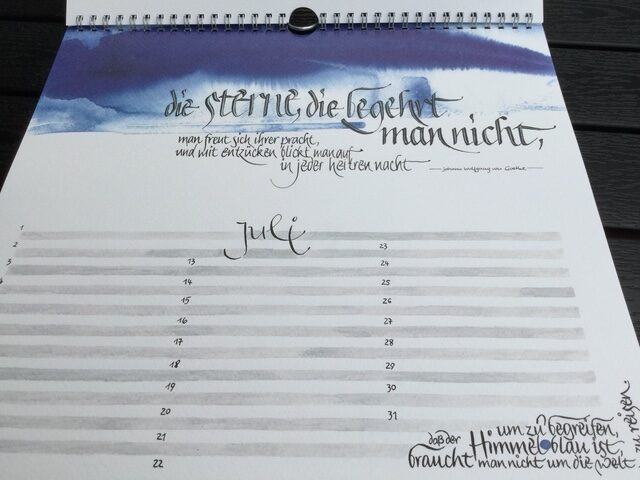 die Sterne, die begehrt
man nicht,
man freut sich ihrer pracht,
und mit entzücken blickt man auf
in jeder heitren nacht
Johann Wolfgang von Goethe
juli
1
2
3
4
13
14
15
16
17
18
19
20
21
22
23
24
25
26
27
28
29
30
31
um zu begreifen,
daß der Himmel blau ist,
braucht man nicht um die welt
zu reisen.